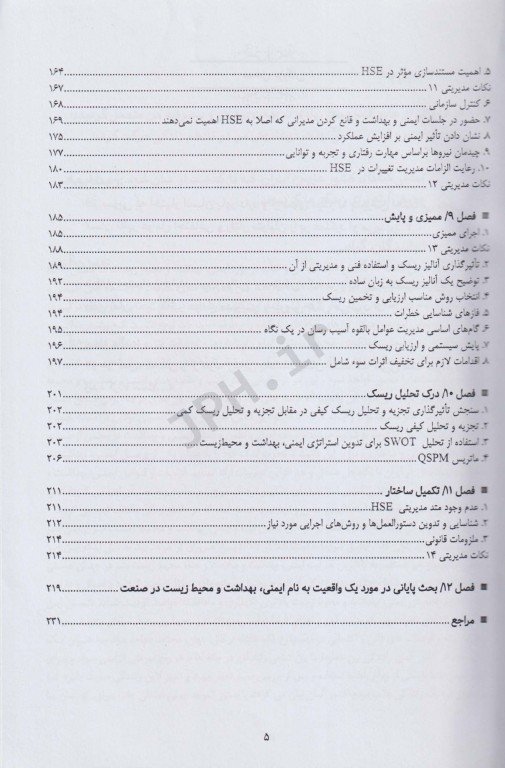 ۵. اهمیت مستندسازی مؤثر در HSE ........ ۱۶۴
نکات مدیریتی ۱۱ ........ ۱۶۷
۶. کنترل سازمانی ........ ۱۶۸
۷. حضور در جلسات ایمنی و بهداشت و قانع کردن مدیرانی که اصلا به HSE اهمیت نمی‌دهند ........ ۱۶۹
۸. نشان دادن تأثیر ایمنی بر افزایش عملکرد ........ ۱۷۵
۹. چیدمان نیروها براساس مهارت رفتاری و تجربه و توانایی ........ ۱۷۷
۱۰. رعایت الزامات مدیریت تغییرات در HSE ........ ۱۸۰
نکات مدیریتی ۱۲ ........ ۱۸۳
■ فصل ۹/ ممیزی و پایش ........ ۱۸۵
۱. اجرای ممیزی ........ ۱۸۵
نکات مدیریتی ۱۳ ........ ۱۸۸
۲. تأثیرگذاری آنالیز ریسک و استفاده فنی و مدیریتی از آن ........ ۱۸۹
۳. توضیح یک آنالیز ریسک به زبان ساده ........ ۱۹۲
۴. انتخاب روش مناسب ارزیابی و تخمین ریسک ........ ۱۹۴
۵. فازهای شناسایی خطرات ........ ۱۹۴
۶. گام‌های اساسی مدیریت عوامل بالقوه آسیب رسان در یک نگاه ........ ۱۹۵
۷. پایش سیستمی و ارزیابی ریسک ........ ۱۹۶
۸. اقدامات لازم برای تخفیف اثرات سوء شامل ........ ۱۹۷
■ فصل ۱۰/ درک تحلیل ریسک ........ ۲۰۱
۱. سنجش تأثیرگذاری تجزیه و تحلیل ریسک کیفی در مقابل تجزیه و تحلیل ریسک کمی ........ ۲۰۲
۲. تجزیه و تحلیل کیفی ریسک ........ ۲۰۲
۳. استفاده از تحلیل SWOT برای تدوین استراتژی ایمنی، بهداشت و محیط‌زیست ........ ۲۰۳
۴. ماتریس QSPM ........ ۲۰۶
■ فصل ۱۱/ تکمیل ساختار ........ ۲۱۱
۱. عدم وجود متد مدیریتی HSE ........ ۲۱۱
۲. شناسایی و تدوین دستورالعمل‌ها و روش‌های اجرایی مورد نیاز ........ ۲۱۲
۳. ملزومات قانونی ........ ۲۱۴
نکات مدیریتی ۱۴ ........ ۲۱۴
■ فصل ۱۲/ بحث پایانی در مورد یک واقعیت به نام ایمنی، بهداشت و محیط زیست در صنعت ........ ۲۱۹
■ مراجع ........ ۲۳۱
JPH.ir
۵